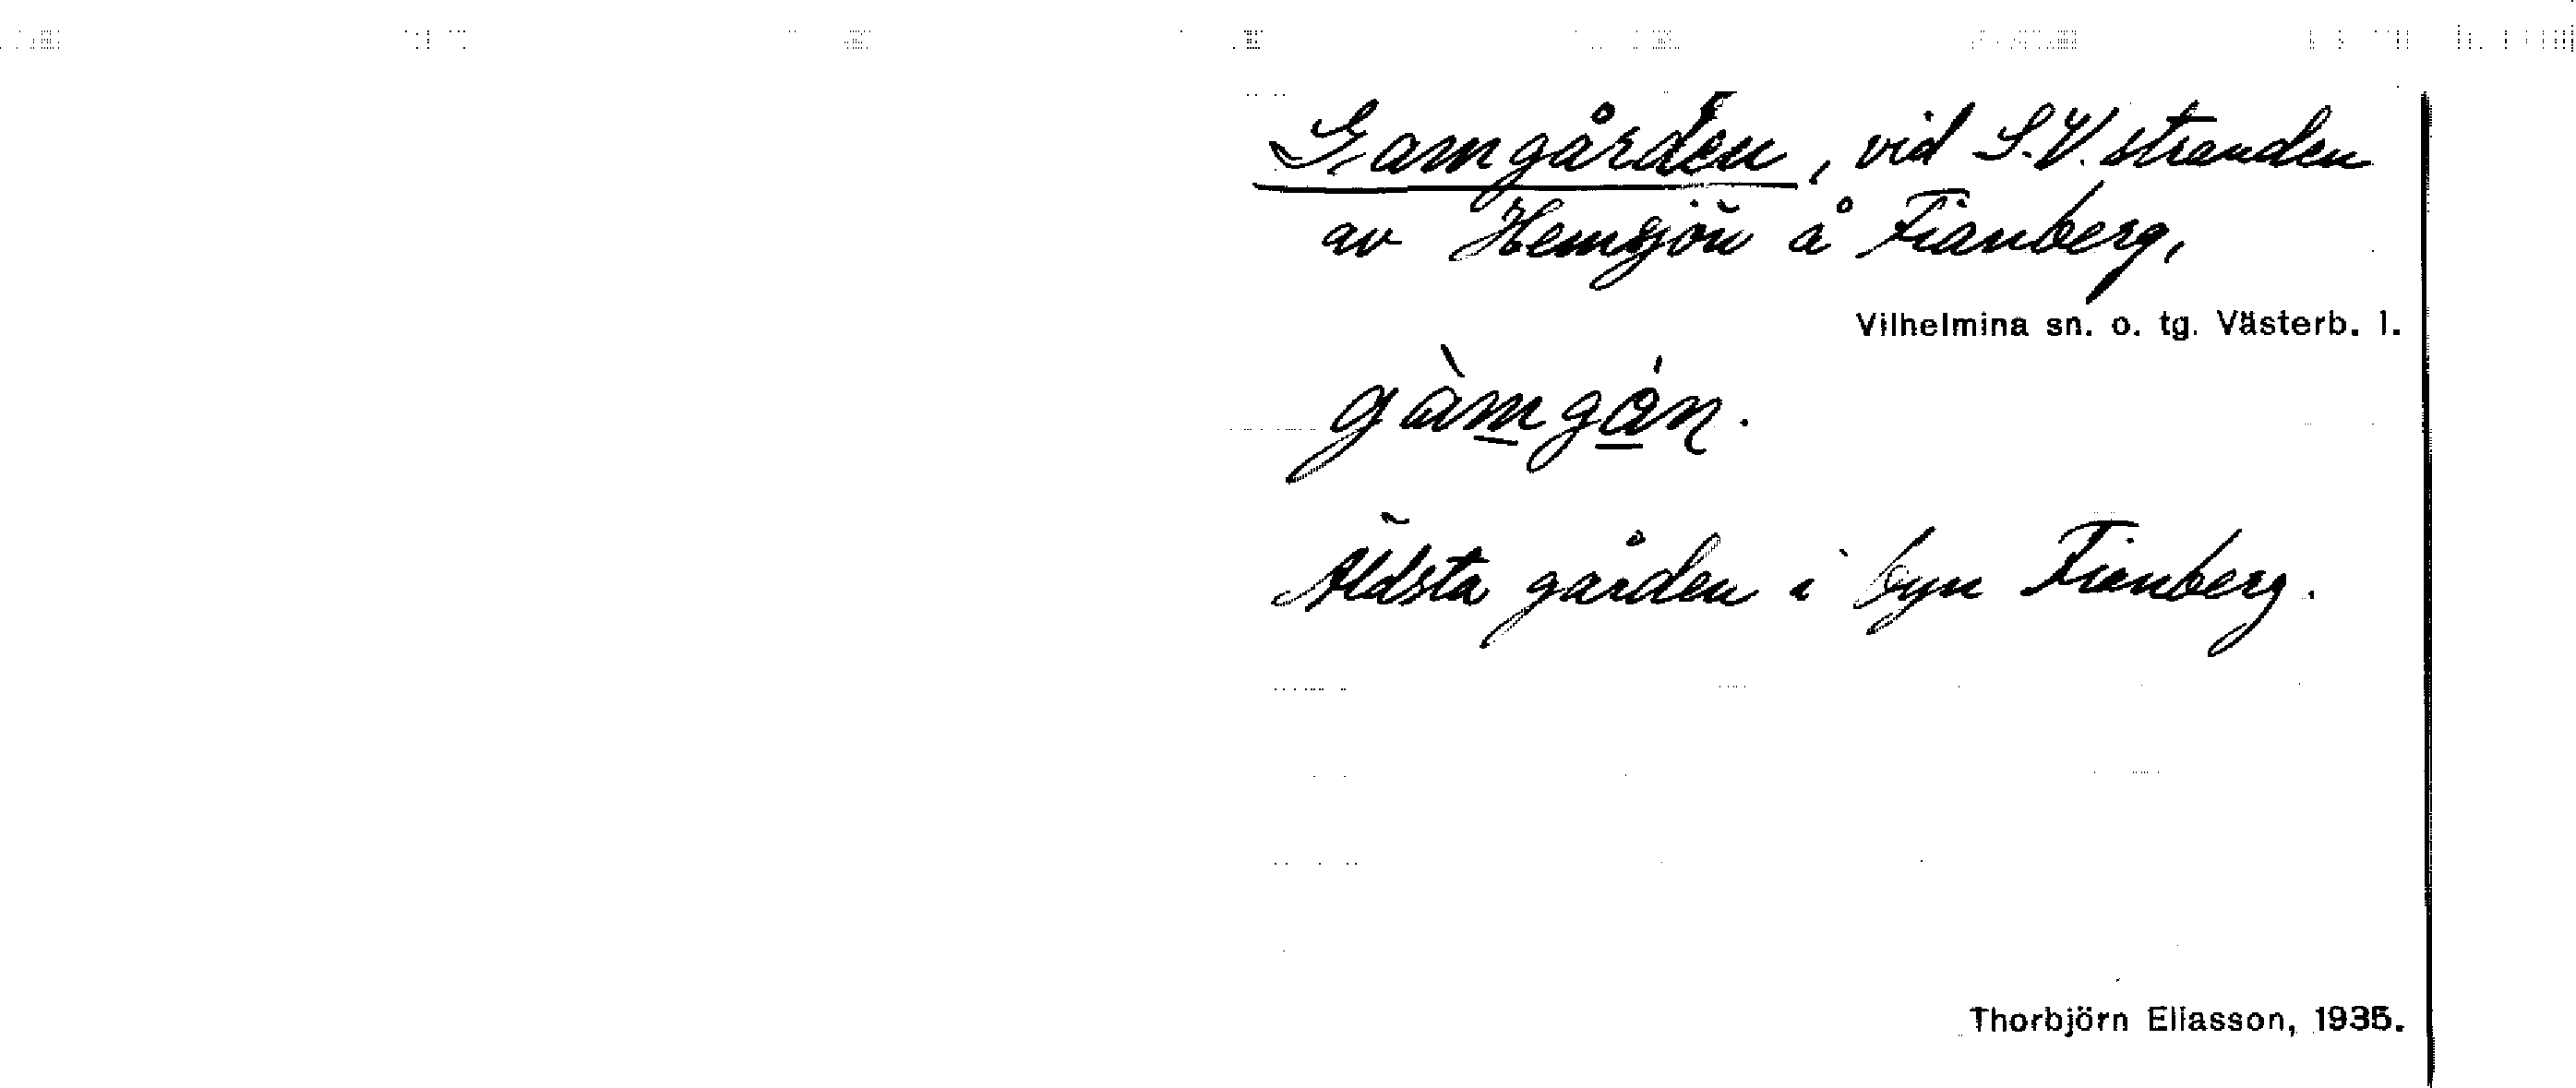 Gamgården, vid S.V. stranden
av Hemsjön å Fianberg,
Vilhelmina sn. o. tg. Västerb. l.
gàmgán.
Äldsta gården i byn Fianberg.
Thorbjörn Eliasson, 1935.